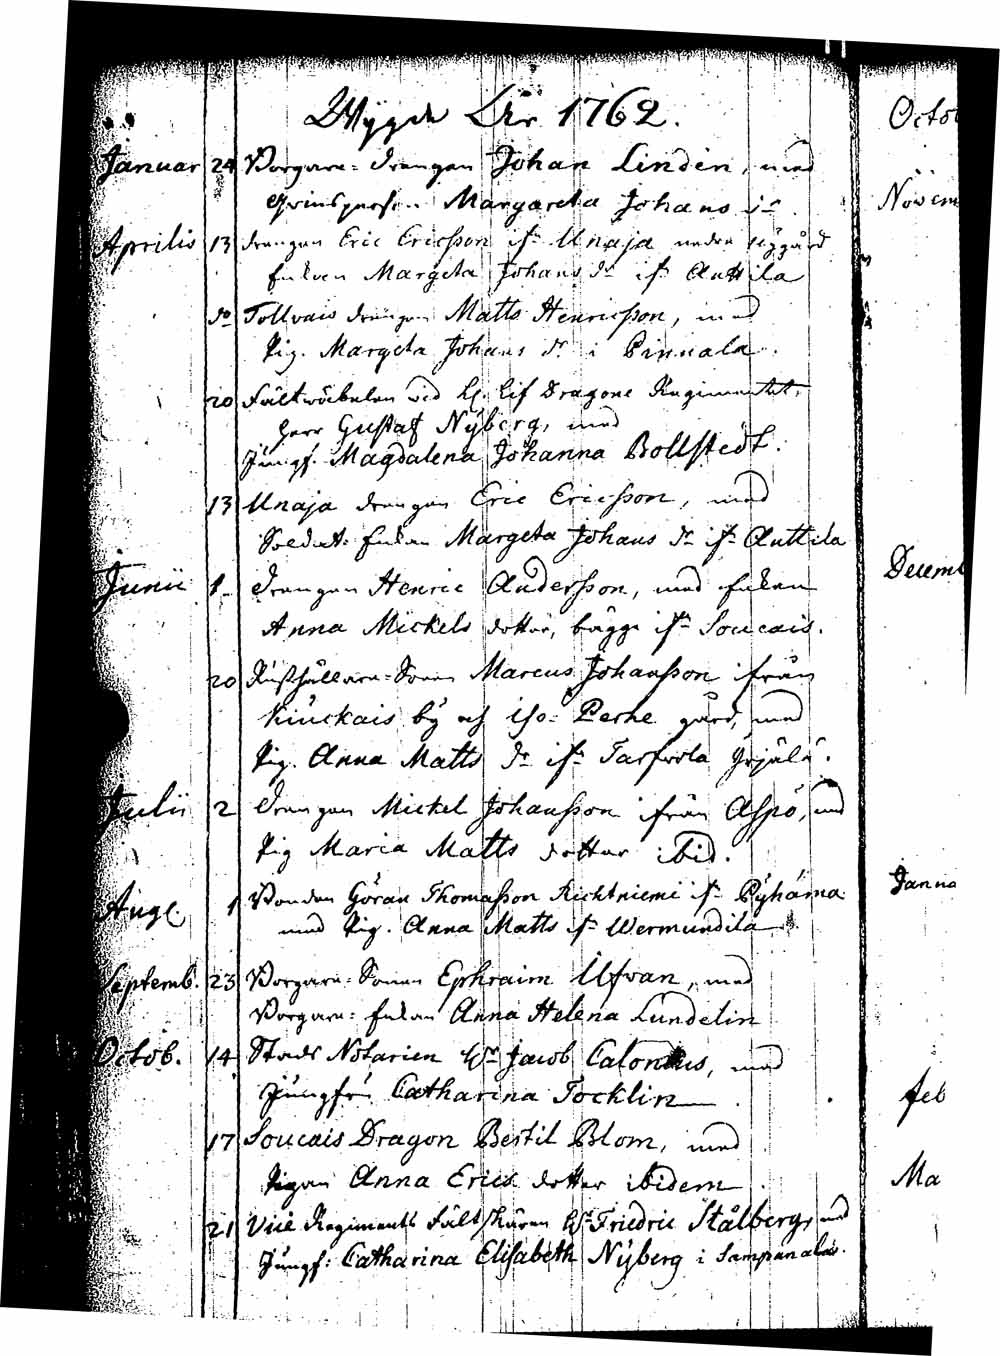 Wygde Åhr 1762.
Januar 24 Borgare-drengen Johan Lindén, med
Margareta Johans dr
Aprilis 13 drengen Eric Ericsson ifr Unaja
Enkan Margeta Johans dr ifr Anttila
do Tollvais drengen Matts Henricsson, med
Pig. Margeta Johans dr i Pinnala.
20 Fältwäbelen wid Lif Dragone Regimentet,
Herr Gustaf Nyberg, med
Jungf. Magdalena Johanna Bollstedt.
13 Unaja drengen Eric Ericsson, med
Soldat: Enkan Margeta Johans dr ifr Anttila
Junii 1. Drengen Henric Andersson, med Enkan
Anna Mickels dotter, bägge ifr Soucais.
20 Rusthållare-Sonen Marcus Johansson ifrån
Kiuckais by och iso-Perhe gård, med
Pig. Anna Matts dr ifr
Julii 2 Drengen Mickel Johansson ifrån Aspö, med
Pig Maria Matts dotter ibid.
Aug. 1 Bonden Göran Thomasson Ricktniemi ifr Pyhäma
med Pig. Anna Matts ifr Wermundila
Septemb. 23 Borgare-Sonen Ephraim Ufvan, med
Borgare-Enkan Anna Helena Lundelin
Octob. 14 Stads Notarien Hr Jacob Calonius, med
Jungfru Catharina Tocklin
17 Soucais Dragon Bertil Blom, med
Pigan Anna Erics dotter ibidem
21 Vice Regiments Fältskären Hr Friedric Stålberg, med
Jungf: Catharina Elisabeth Nyberg i Sampanala.
Octo
Novem
Decemb
Janua
feb
Ma